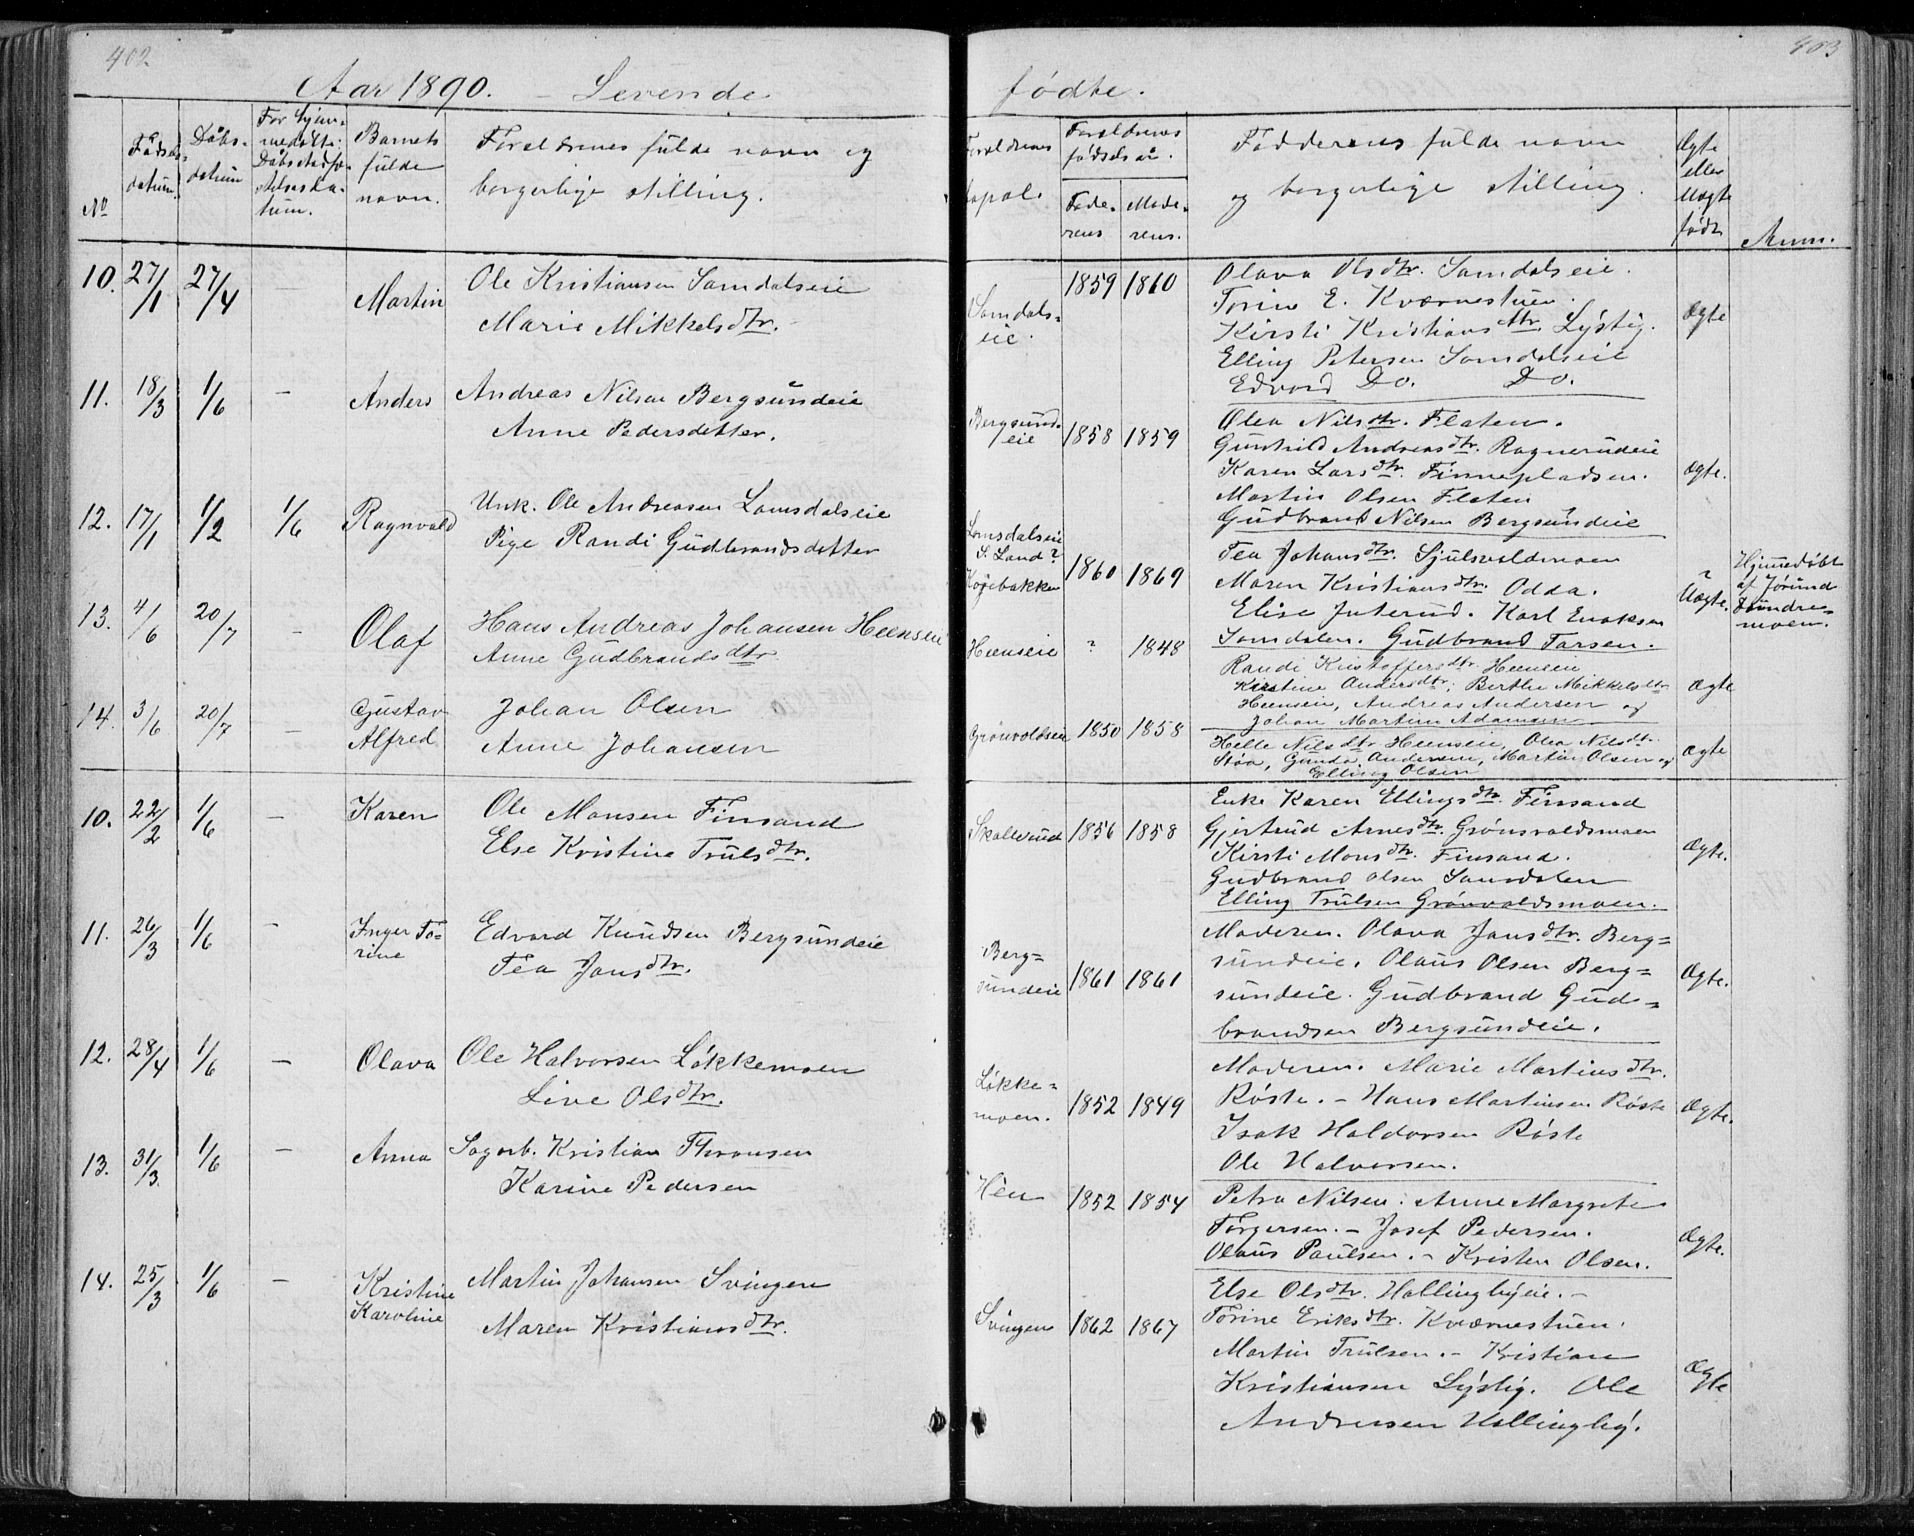 402
403
Aar 1890. – Levende
fødte.
No
Fødsels-
datum
Dåbs-
datum
For hjem-
medøbte:
tum.
Barnets
fulde
navn.
Forældrenes fulde navn og
borgerlige stilling.
Forældrenes
bopæl
Forældrenes
fødselsår.
Fade-
rens
Mode-
rens.
Faddernes fulde navn
og borgerlige stilling.
Ægte
eller
Uægte
født
Anm.
10. 27/1 27/4 – Martin
Ole Kristiansen Samdalseie
Marie Mikkelsdtr.
Samdals-
eie.
1859 1860
Olava Olsdtr. Samdalseie.
Torine E. Kværnestuen.
Kirsti Kristiansdtr. Lystig.
Elling Petersen Samdalseie
Edvard Do. Do.
Ægte
11. 18/3 1/6 – Anders
Andreas Nilsen Bergsundeie
Anne Pedersdetter.
Bergsund-
eie
1858 1859
Olea Nilsdtr. Flaten.
Gunhild Andreasdtr. Ragnerudeie
Karen Larsdtr. Finnepladsen.
Martin Olsen Flaten
Gudbrand Nilsen Bergsundeie
Ægte.
12. 17/1 1/2 1/6 Ragnvald
Unk. Ole Andreasen Lomsdalseie
Pige Randi Gudbrandsdatter
Lomsdalseie
S. Land?
Højebakken
1860 1869
Tea Johansdtr. Sjulsvoldmoen
Maren Kristiansdtr. Odda.
Elise Juterud. Karl Enoksen
Samdalen. Gudbrand Larsen.
Uægte.
Hjemmedøbt
af Jørund
Tundre-
moen.
13. 4/6 20/7 – Olaf
Hans Andreas Johansen Heenseie
Anne Gudbrandsdtr
Heenseie
? 1848
Randi Kristoffersdtr. Heenseie
Kirstine Andersdtr; Berthe Mikkelsdtr
Heenseie, Andreas Andersen og
Johan Martin Adamsen
Ægte
14. 3/6 20/7 –
Gustav
Alfred
Johan Olsen
Anne Johansen
Grønvoldseie
1850 1858
Helle Nilsdtr Heenseie, Olea Nilsdtr.
Støa, Gunda Andersen, Martin Olsen og
Elling Olsen
Ægte
10. 22/2 1/6 – Karen
Ole Monsen Finsand
Else Kristine Trulsdtr.
Skollerud
1856 1858
Enke Karen Ellingsdtr. Finsand
Gjertrud Arnesdtr. Grønvoldsmoen
Kirsti Monsdtr. Finsand.
Gudbrand Olsen Samdalen
Elling Trulsen Grønvoldsmoen.
Ægte.
11. 26/3 1/6 –
Inger To-
rine
Edvard Knudsen Bergsundeie
Tea Jansdtr.
Berg-
sundeie
1861 1861
Moderen. Olava Jansdtr. Berg-
sundeie. Olaus Olsen Berg-
sundeie. Gudbrand Gud-
brandsen Bergsundeie.
Ægte.
12. 28/4 1/6 – Olava
Ole Halvorsen Løkkemoen
Live Olsdtr.
Løkke-
moen.
1852 1849
Moderen. Marie Martinsdtr.
Røste. – Hans Martinsen Røste
Isak Haldorsen Røste
Ole Halvorsen.
Ægte.
13. 31/3 1/6 – Anna
Sagarb. Kristian Thronsen
Karine Pedersen
Hén
1852 1854
Petra Nilsen. Anne Margrete
Torgersen. – Josef Pedersen.
Olaus Paulsen. – Kristen Olsen.
Ægte.
14. 25/3 1/6 –
Kristine
Karoline
Martin Johansen Svingen
Maren Kristiansdtr.
Svingen
1862 1867
Else Olsdtr. Hallingbyeie. –
Torine Eriksdtr. Kværnestuen.
Martin Trulsen. – Kristian
Kristiansen Lystig. Ole
Andersen Hallingby.
Ægte